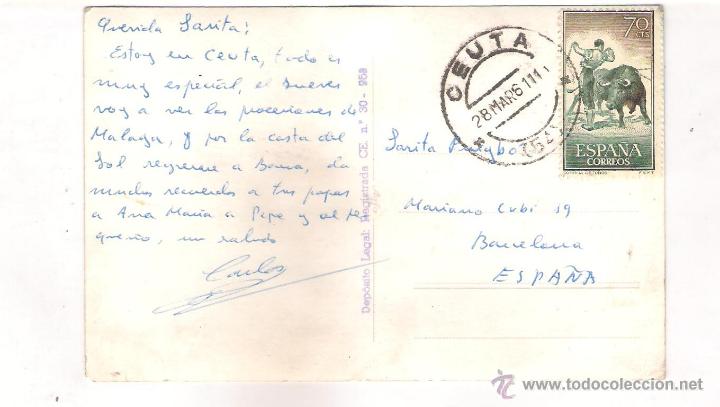 Querida Sarita:
Estoy en Ceuta, todo es
muy especial, el Jueves
voy a ver las procesiones de
Malaga, y por la costa del
Sol regresare a Barna, da
muchos recuerdos a tus papas
a Ana Maria a Pepe y al
un saludo
Carlos
Depósito Legal: Registrada CE. n.º 30 - 959
CEUTA
28 MAR 61 11
70 CTS
ESPAÑA
CORREOS
F.N.M.T
Sarita
Mariano Cubi 19
Barcelona
ESPAÑA
www.todocoleccion.net